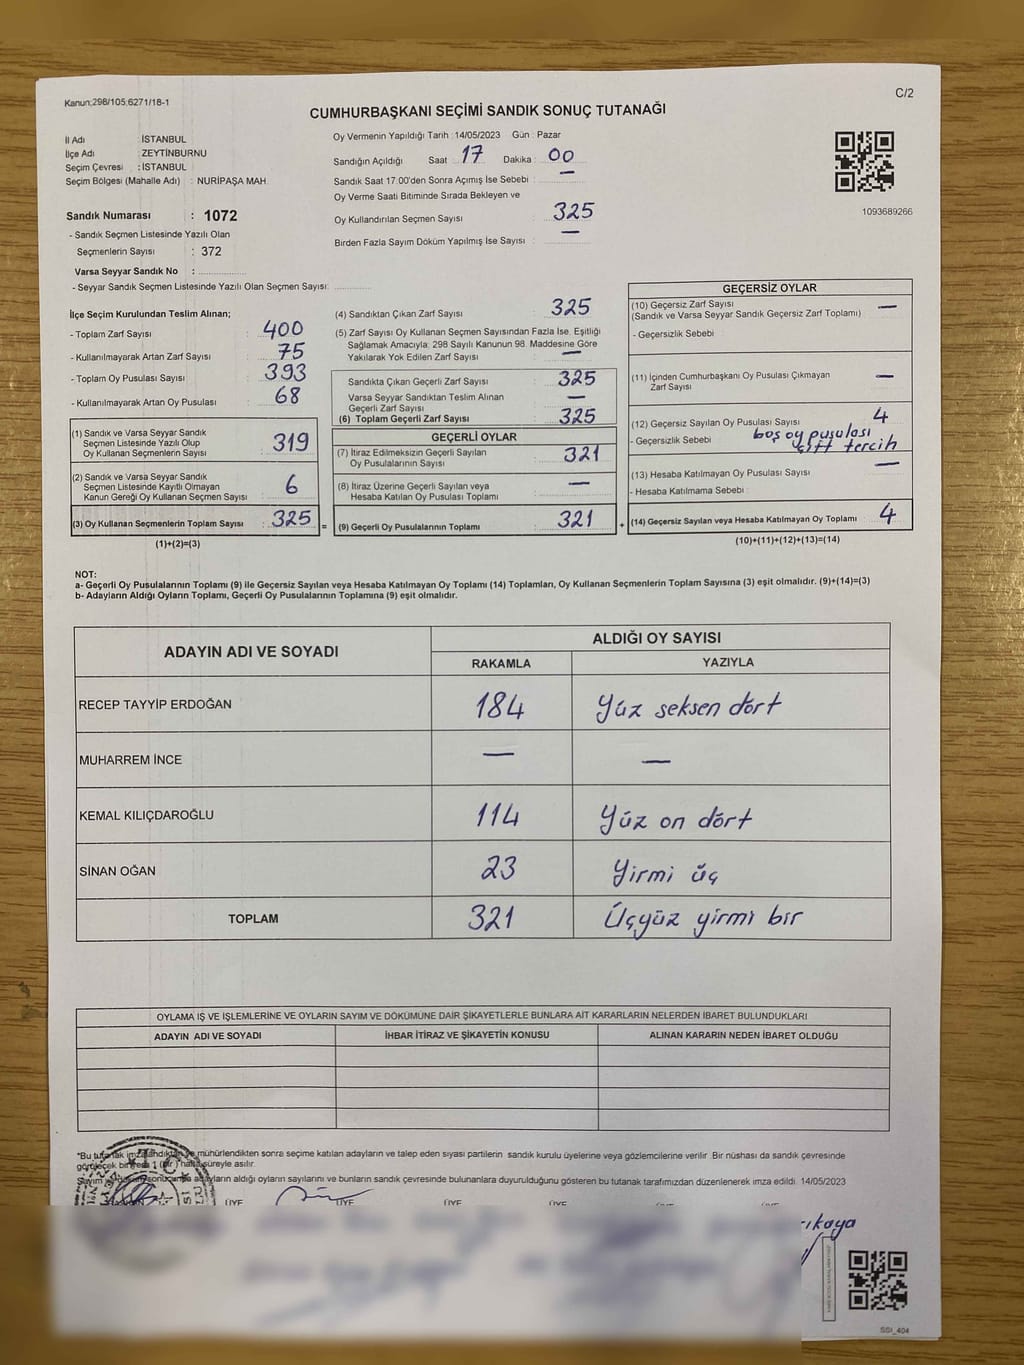 Kanun;298/105;6271/18-1
C/2
CUMHURBAŞKANI SEÇİMİ SANDIK SONUÇ TUTANAĞI
İl Adı : İSTANBUL
İlçe Adı : ZEYTİNBURNU
Seçim Çevresi : İSTANBUL
Seçim Bölgesi (Mahalle Adı) : NURİPAŞA MAH.
Sandık Numarası : 1072
- Sandık Seçmen Listesinde Yazılı Olan
Seçmenlerin Sayısı : 372
Varsa Seyyar Sandık No :
- Seyyar Sandık Seçmen Listesinde Yazılı Olan Seçmen Sayısı:
Oy Vermenin Yapıldığı Tarih : 14/05/2023 Gün : Pazar
Sandığın Açıldığı Saat : 17 Dakika : 00
Sandık Saat 17.00'den Sonra Açımış İse Sebebi : —
Oy Verme Saati Bitiminde Sırada Bekleyen ve
Oy Kullandırılan Seçmen Sayısı : 325
Birden Fazla Sayım Döküm Yapılmış İse Sayısı : —
1093689266
İlçe Seçim Kurulundan Teslim Alınan;
- Toplam Zarf Sayısı : 400
- Kullanılmayarak Artan Zarf Sayısı : 75
- Toplam Oy Pusulası Sayısı : 393
- Kullanılmayarak Artan Oy Pusulası : 68
(1) Sandık ve Varsa Seyyar Sandık
Seçmen Listesinde Yazılı Olup
Oy Kullanan Seçmenlerin Sayısı : 319
(2) Sandık ve Varsa Seyyar Sandık
Seçmen Listesinde Kayıtlı Olmayan
Kanun Gereği Oy Kullanan Seçmen Sayısı : 6
(3) Oy Kullanan Seçmenlerin Toplam Sayısı : 325 =
(1)+(2)=(3)
(4) Sandıktan Çıkan Zarf Sayısı : 325
(5) Zarf Sayısı Oy Kullanan Seçmen Sayısından Fazla İse, Eşitliği
Sağlamak Amacıyla; 298 Sayılı Kanunun 98. Maddesine Göre
Yakılarak Yok Edilen Zarf Sayısı : —
Sandıkta Çıkan Geçerli Zarf Sayısı : 325
Varsa Seyyar Sandıktan Teslim Alınan
Geçerli Zarf Sayısı : —
(6) Toplam Geçerli Zarf Sayısı : 325
GEÇERLİ OYLAR
(7) İtiraz Edilmeksizin Geçerli Sayılan
Oy Pusulalarının Sayısı : 321
(8) İtiraz Üzerine Geçerli Sayılan veya
Hesaba Katılan Oy Pusulası Toplamı : —
(9) Geçerli Oy Pusulalarının Toplamı : 321 +
GEÇERSİZ OYLAR
(10) Geçersiz Zarf Sayısı
(Sandık ve Varsa Seyyar Sandık Geçersiz Zarf Toplamı) : —
- Geçersizlik Sebebi :
(11) İçinden Cumhurbaşkanı Oy Pusulası Çıkmayan
Zarf Sayısı : —
(12) Geçersiz Sayılan Oy Pusulası Sayısı : 4
- Geçersizlik Sebebi : boş oy pusulası
çift tercih
(13) Hesaba Katılmayan Oy Pusulası Sayısı : —
- Hesaba Katılmama Sebebi :
(14) Geçersiz Sayılan veya Hesaba Katılmayan Oy Toplamı : 4
(10)+(11)+(12)+(13)=(14)
NOT:
a- Geçerli Oy Pusulalarının Toplamı (9) ile Geçersiz Sayılan veya Hesaba Katılmayan Oy Toplamı (14) Toplamları, Oy Kullanan Seçmenlerin Toplam Sayısına (3) eşit olmalıdır. (9)+(14)=(3)
b- Adayların Aldığı Oyların Toplamı, Geçerli Oy Pusulalarının Toplamına (9) eşit olmalıdır.
ADAYIN ADI VE SOYADI ALDIĞI OY SAYISI
RAKAMLA YAZIYLA
RECEP TAYYİP ERDOĞAN 184 Yüz seksen dört
MUHARREM İNCE — —
KEMAL KILIÇDAROĞLU 114 Yüz on dört
SİNAN OĞAN 23 Yirmi üç
TOPLAM 321 Üçyüz yirmi bir
OYLAMA İŞ VE İŞLEMLERİNE VE OYLARIN SAYIM VE DÖKÜMÜNE DAİR ŞİKAYETLERLE BUNLARA AİT KARARLARIN NELERDEN İBARET BULUNDUKLARI
ADAYIN ADI VE SOYADI İHBAR İTİRAZ VE ŞİKAYETİN KONUSU ALINAN KARARIN NEDEN İBARET OLDUĞU
*Bu tutanak imzalandıktan ve mühürlendikten sonra seçime katılan adayların ve talep eden siyasi partilerin sandık kurulu üyelerine veya gözlemcilerine verilir. Bir nüshası da sandık çevresinde
görülecek bir yere 1 (bir) hafta süreyle asılır.
Sayım ve döküm sonucunda adayların aldığı oyların sayılarını ve bunların sandık çevresinde bulunanlara duyurulduğunu gösteren bu tutanak tarafımızdan düzenlenerek imza edildi. 14/05/2023
ÜYE ÜYE ÜYE ÜYE ÜYE
SSİ_404